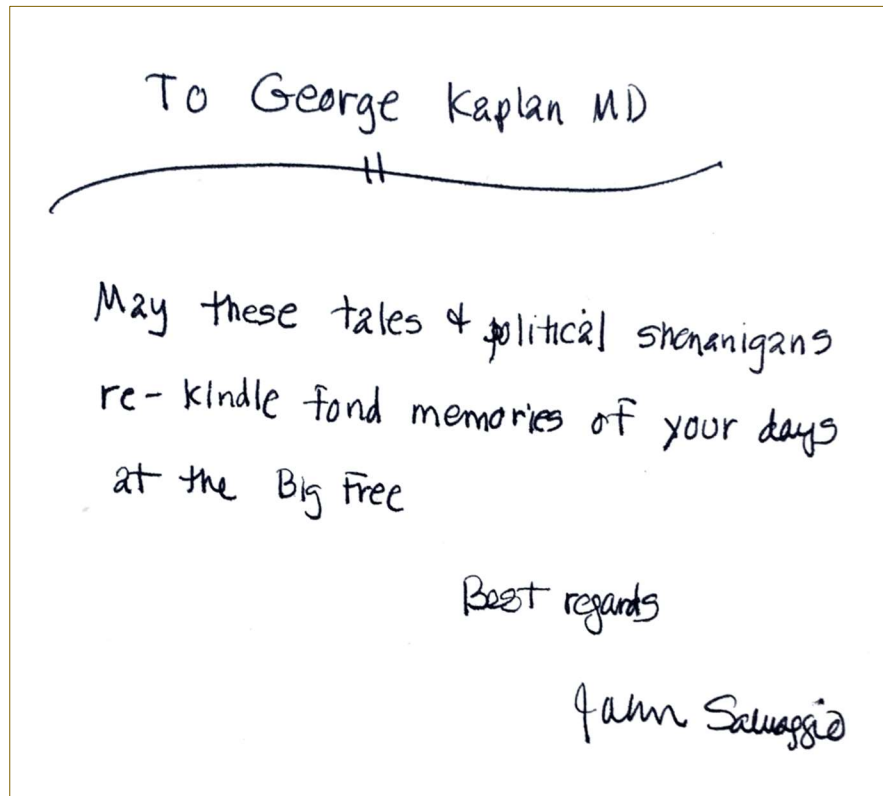 To George Kaplan MD
May these tales & political shenanigans
re-kindle fond memories of your days
at the Big Free
Best regards
John Salvaggio